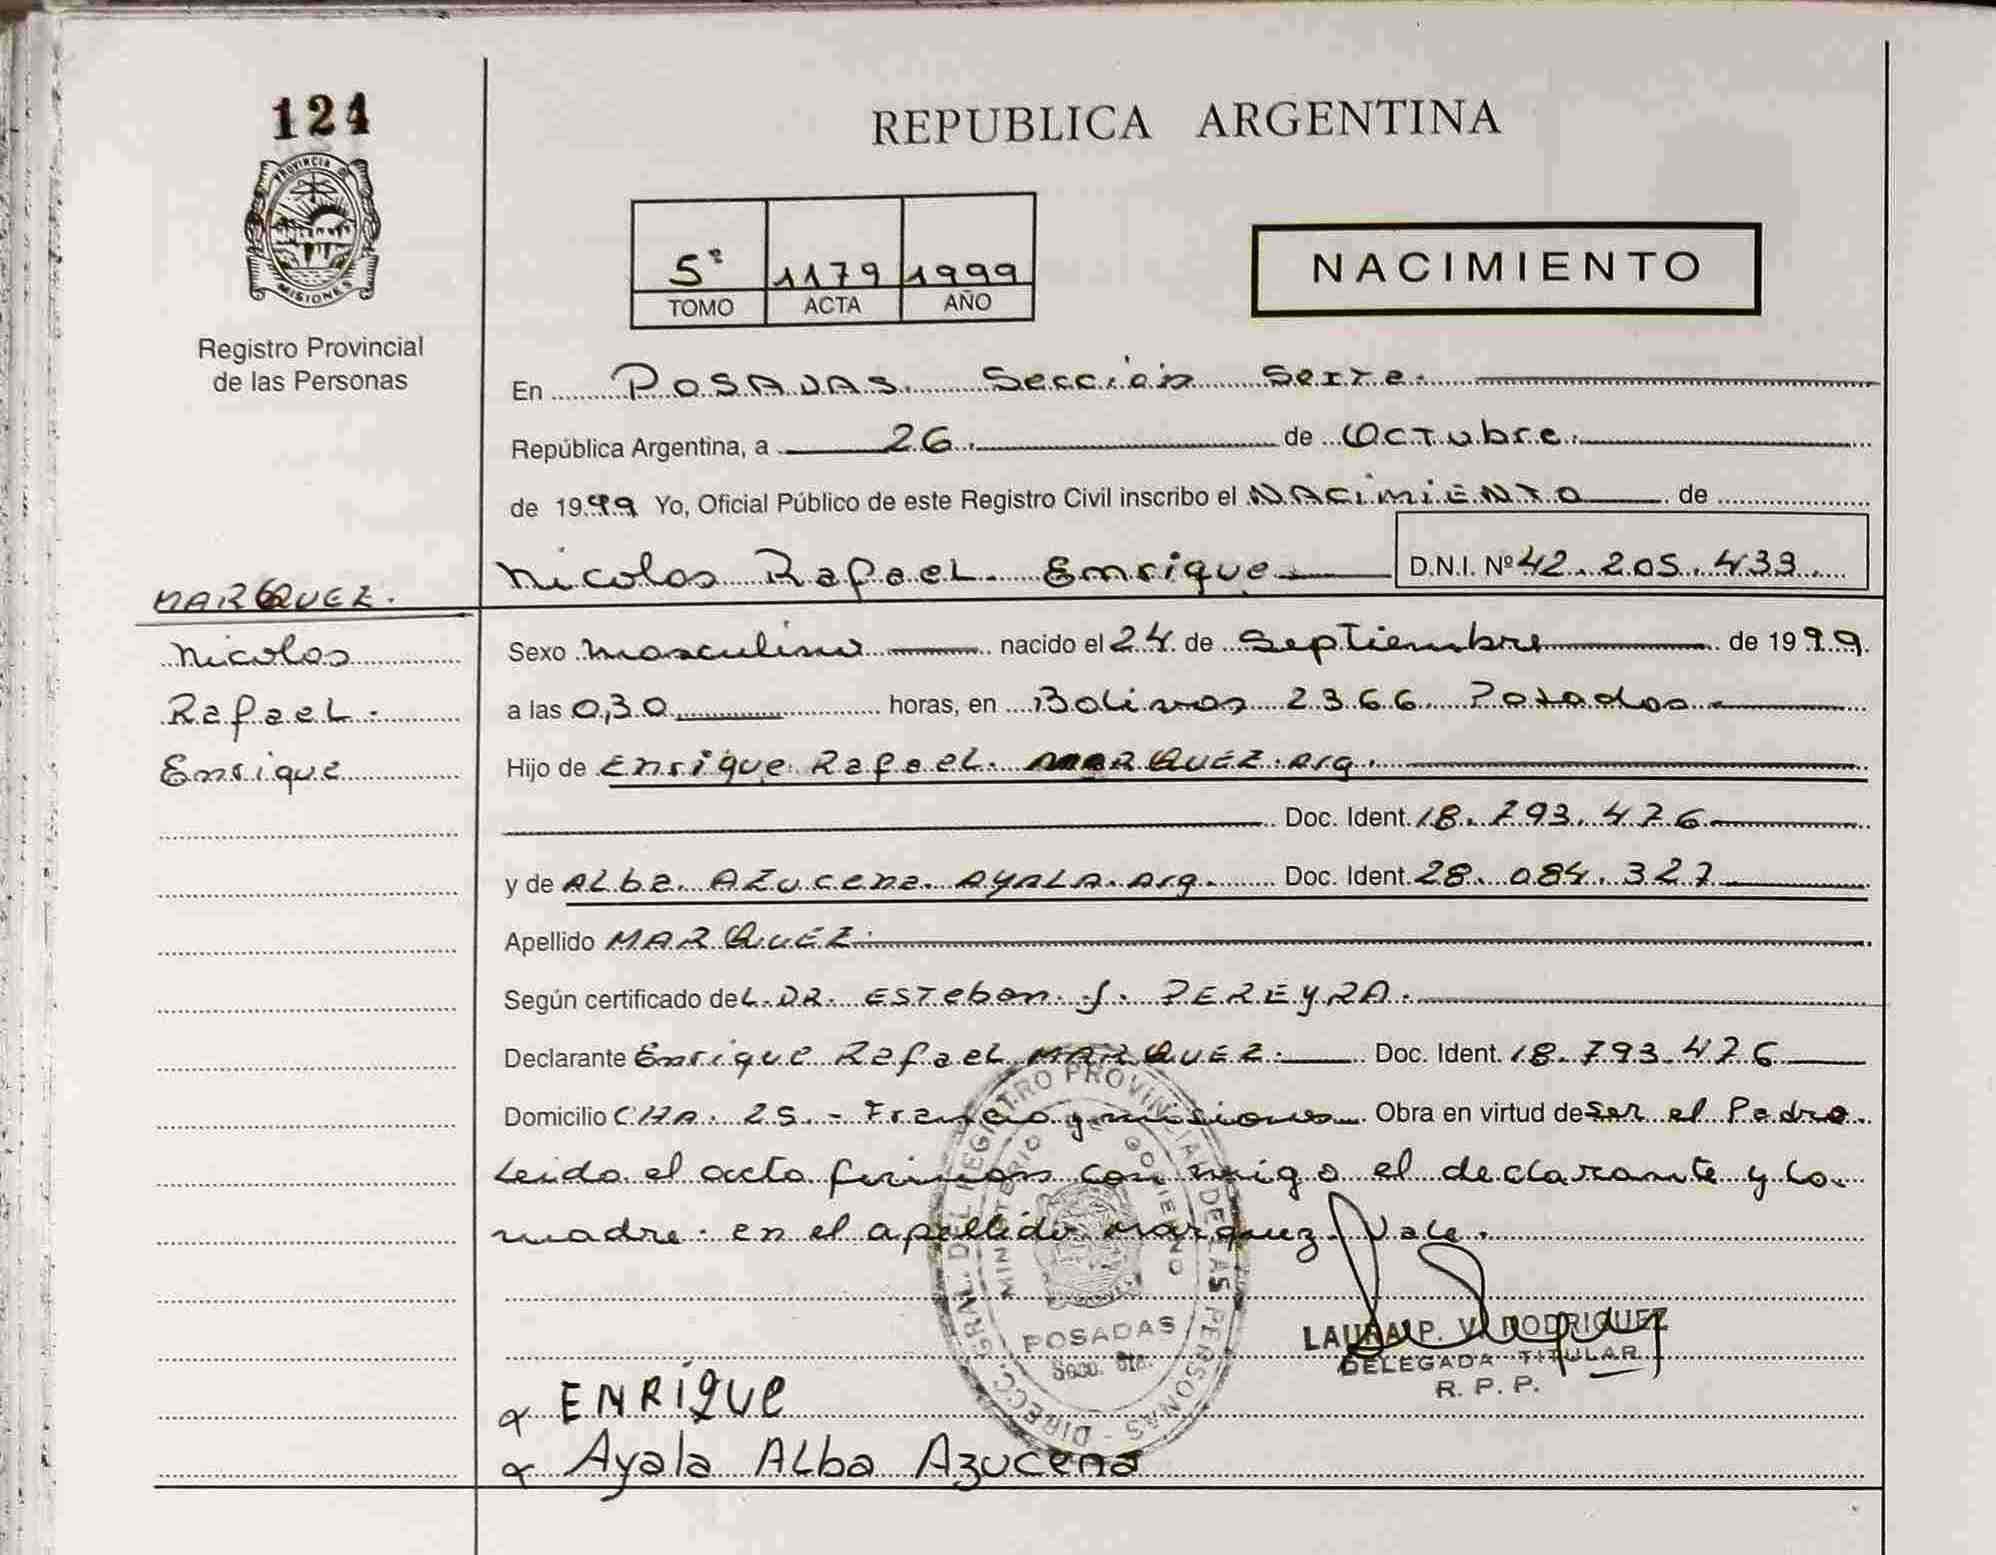 124
PROVINCIA DE
MISIONES
Registro Provincial
de las Personas
REPUBLICA ARGENTINA
5º 1179 1999
TOMO ACTA AÑO
NACIMIENTO
En POSADAS. Sección Sexta.
República Argentina, a 26. de Octubre.
de 1999 Yo, Oficial Público de este Registro Civil inscribo el NACIMIENTO de
Nicolas Rafael Enrique D.N.I. Nº 42.205.433
MARQUEZ.
Nicolas
Rafael.
Enrique
Sexo masculino nacido el 24 de Septiembre de 1999
a las 0,30 horas, en Bolivar 2366 Posadas
Hijo de Enrique Rafael MARQUEZ. Arg.
Doc. Ident. 18.793.476
y de Alba Azucena AYALA. Arg. Doc. Ident. 28.084.327
Apellido MARQUEZ.
Según certificado del DR. Esteban J. PEREYRA.
Declarante Enrique Rafael MARQUEZ. Doc. Ident. 18.793.476
Domicilio CHA. 25.- Francia y misiones Obra en virtud de ser el Padre
Leido el acto firman conmigo el declarante y la
madre. en el apellido Marquez. Vale.
DIRECC. GRAL. DEL REGISTRO PROVINCIAL DE LAS PERSONAS
MINISTERIO GOBIERNO
POSADAS
Secc. 6ta.
LAURA P. V. RODRIGUEZ
DELEGADA TITULAR
R. P. P.
ENRIQUE
Ayala Alba Azucena